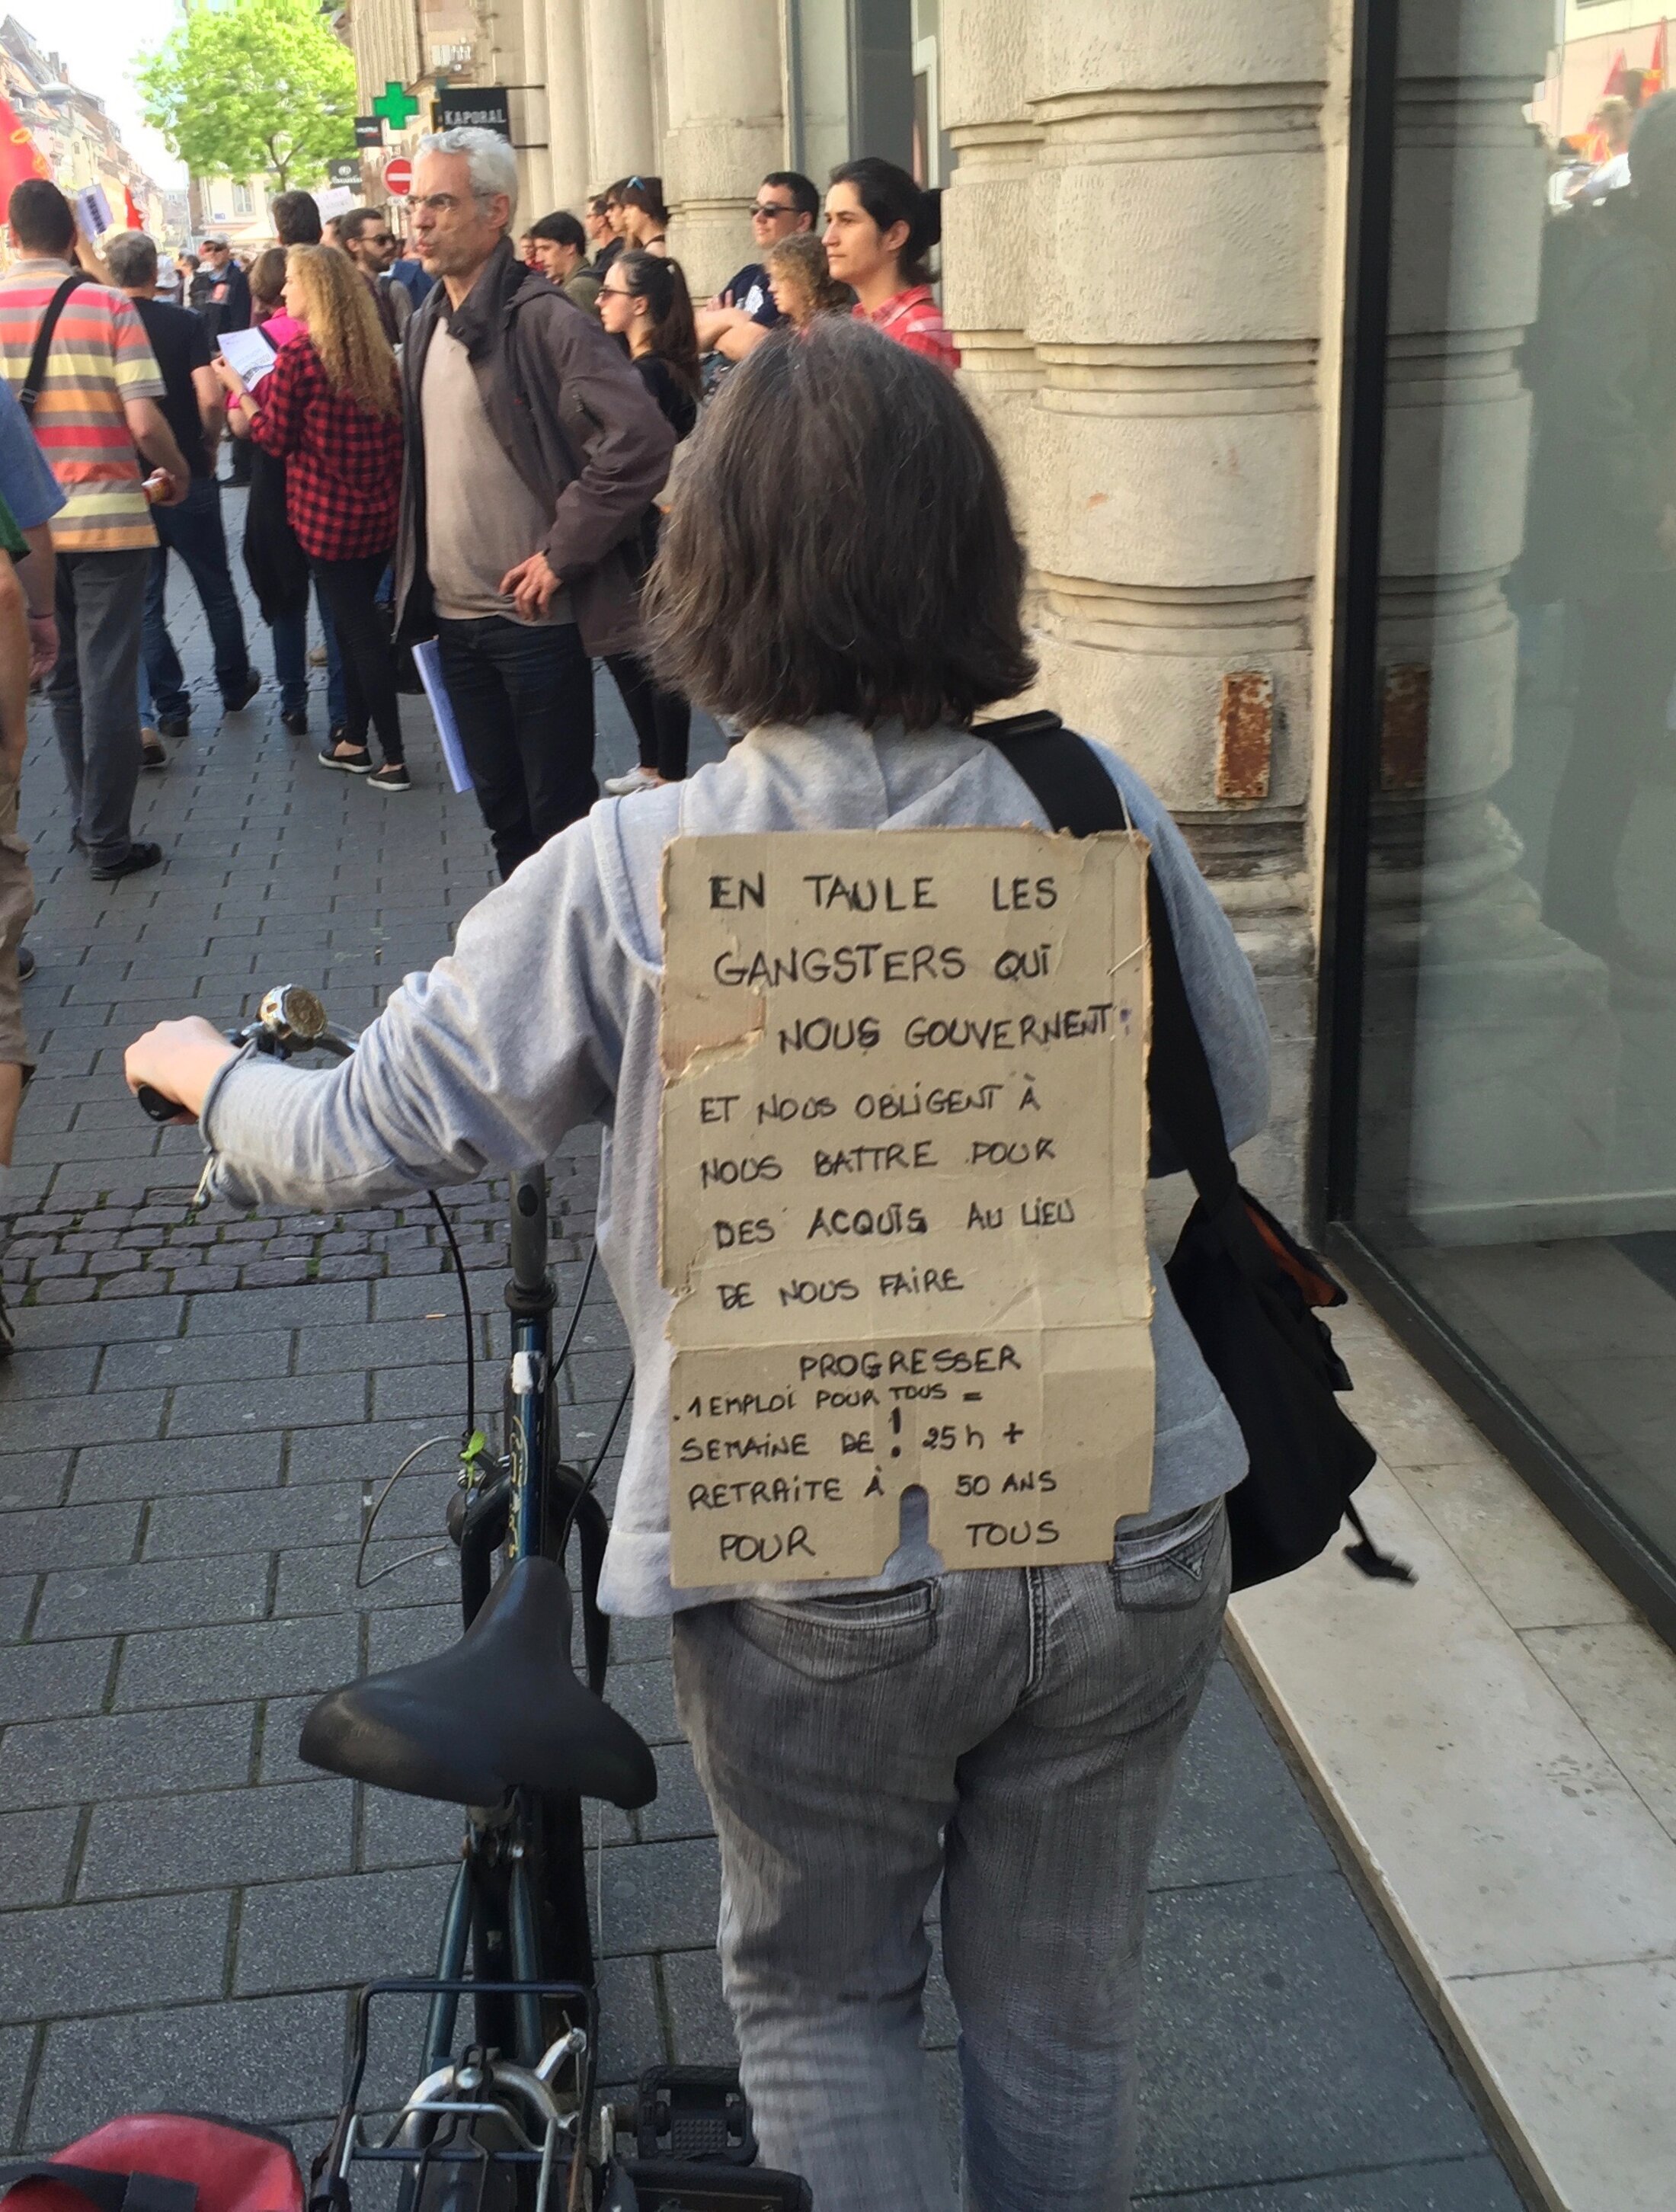 KAPORAL
EN TAULE LES
GANGSTERS QUI
NOUS GOUVERNENT:
ET NOUS OBLIGENT À
NOUS BATTRE POUR
DES ACQUIS AU LIEU
DE NOUS FAIRE
PROGRESSER
.1 EMPLOI POUR TOUS =
SEMAINE DE ! 25h +
RETRAITE À 50 ANS
POUR TOUS